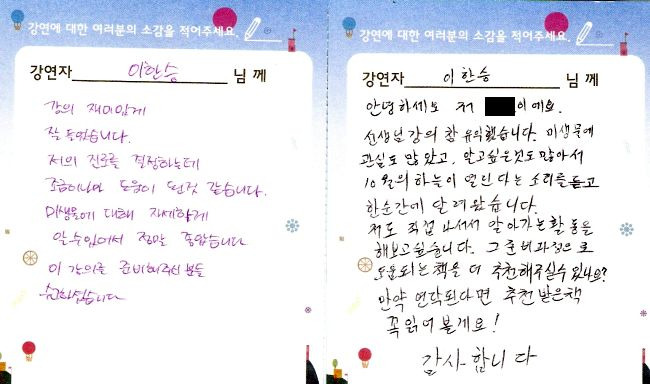 강연에 대한 여러분의 소감을 적어주세요.
강연자 이한승 님 께
강의 재미있게
잘 들었습니다.
저의 진로를 결정하는데
조금이나마 도움이 된것 같습니다.
미생물에 대해 자세하게
알 수 있어서 정말 좋았습니다
이 강의를 준비해주신 분들
수고하셨습니다
강연에 대한 여러분의 소감을 적어주세요.
강연자 이한승 님 께
안녕하세요 저 이예요.
선생님 강의 참 유익했습니다. 미생물에
관심도 많았고, 알고싶은것도 많아서
10월의 하늘이 열린다는 소리를 듣고
한순간에 달려왔습니다.
저도 직접 나서서 알아가는 활동을
해보고싶습니다. 그 준비과정으로
도움되는 책을 더 추천해주실수 있나요?
만약 연락된다면 추천받은책
꼭 읽어 볼게요!
감사합니다